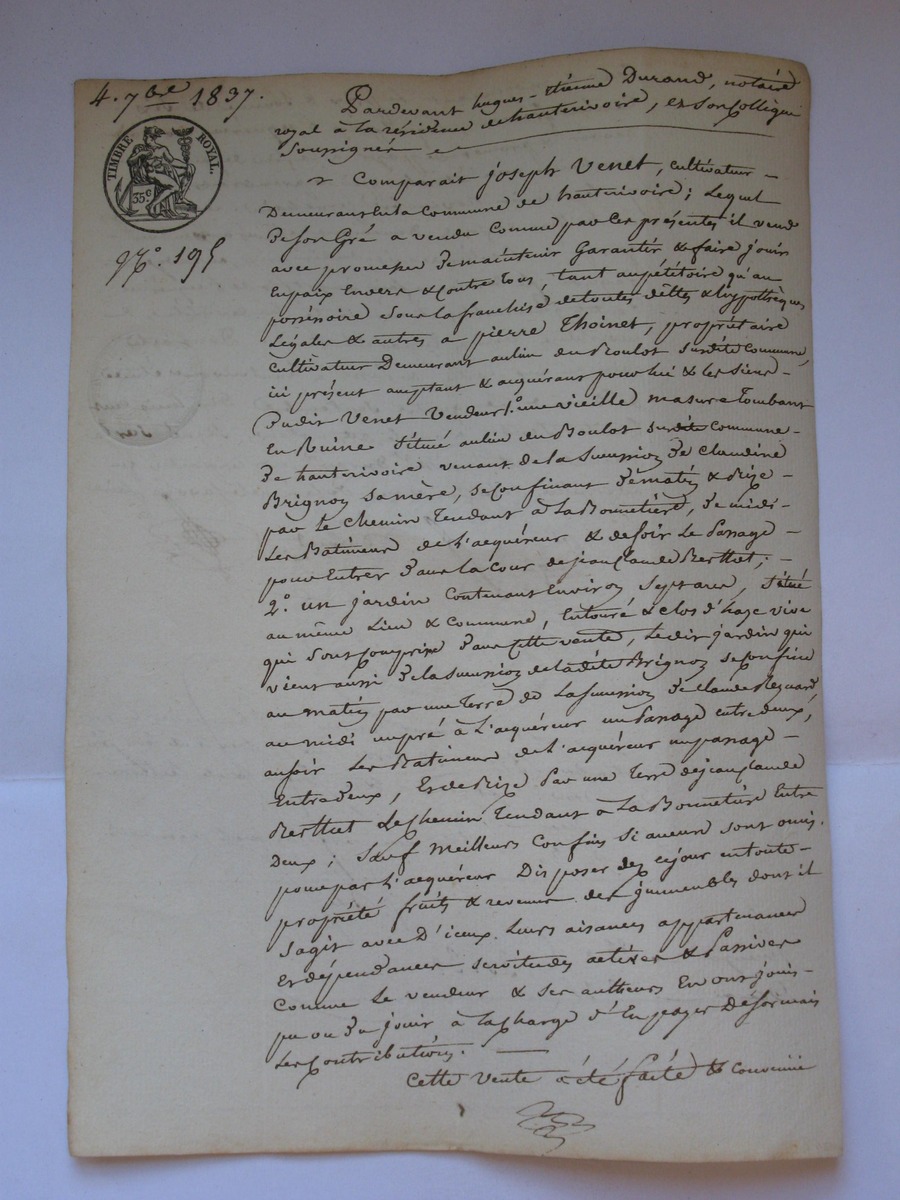 4. 7bre 1837.
TIMBRE ROYAL.
35 c
N°. 195
Pardevant hugues-étienne Durand, notaire
royal à la résidence de hauterivoire, et son collègue
soussignés
Comparait joseph Venet, cultivateur
Demeurant en la Commune de hauterivoire ; Lequel
De son Gré a vendu comme par ces présentes il vend
avec promesse De maintenir Garantir & faire jouir
En paix Envers & contre tous, tant au pétitoire qu'au
possessoire sous la franchise de toutes dettes & hypothèques
Légales & autres a pierre Thoinet, propriétaire
cultivateur Demeurant au lieu du Boulot susdite commune,
ici présent acceptant & acquérant pour lui & les siens
Dudit Venet Vendeur 1.° une vieille masure Tombant
En Ruine située au lieu du Boulot susdite Commune
De hauterivoire venant de la succession De Claudine
Brignon sa mère, se confinant De matin & Bize
par le chemin Tendant à La Bonnetière, De midi
Les Batimens de L'acquéreur & de soir Le Passage
pour Entrer Dans la Cour de jean Claude Berthet ;
2.° un jardin Contenant Environ Sept ares, situé
au même Lieu & Commune, Entouré & clos d'haye vive
qui sont compris Dans cette vente, Ledit jardin qui
vient aussi De la succession de ladite Brignon se confine
au matin par une Terre de La succession De Claude
au midi un pré à L'acquéreur un Passage entre deux,
au soir Les Batimens de L'acquéreur un passage
Entre Deux, Et de Bize Par une Terre de jean Claude
Berthet Le chemin Tendant à La Bonnetière Entre
Deux ; sauf meilleurs confins si aucuns sont omis.
pour par L'acquéreur Disposer dez ce jour en toute
propriété fruits & revenus des immeubles dont il
s'agit avec D'iceux Leurs aisances appartenances
Et dépendances servitudes actives & Passives
Comme Le vendeur & ses autheurs En ont joui
pu ou Du jouir à la charge d'En payer Désormais
Les contributions.
Cette Vente a été faite & convenue